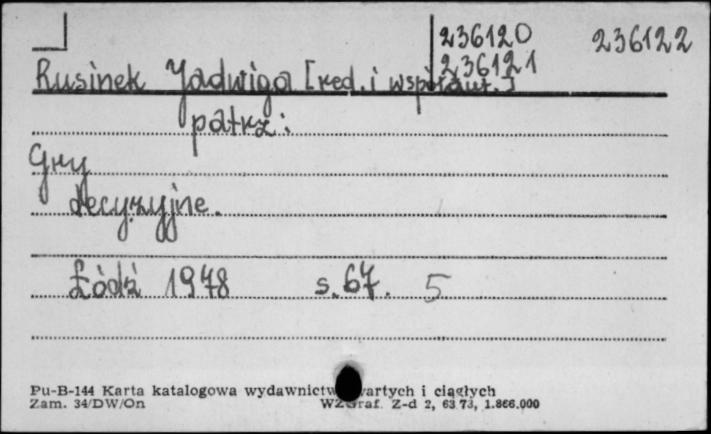 236120 236122
236121
Rusinek Jadwiga [red. i współaut.]
patrz:
Gry
decyzyjne.
Łódź 1978 s. 67. 5
Pu-B-144 Karta katalogowa wydawnictw zwartych i ciągłych
Zam. 34/DW/On WZGraf. Z-d 2, 63 73, 1.866.000